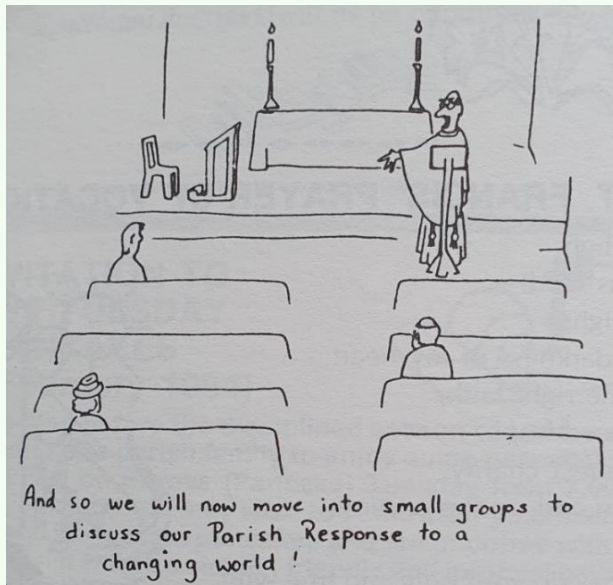 And so we will now move into small groups to
discuss our Parish Response to a
changing world !